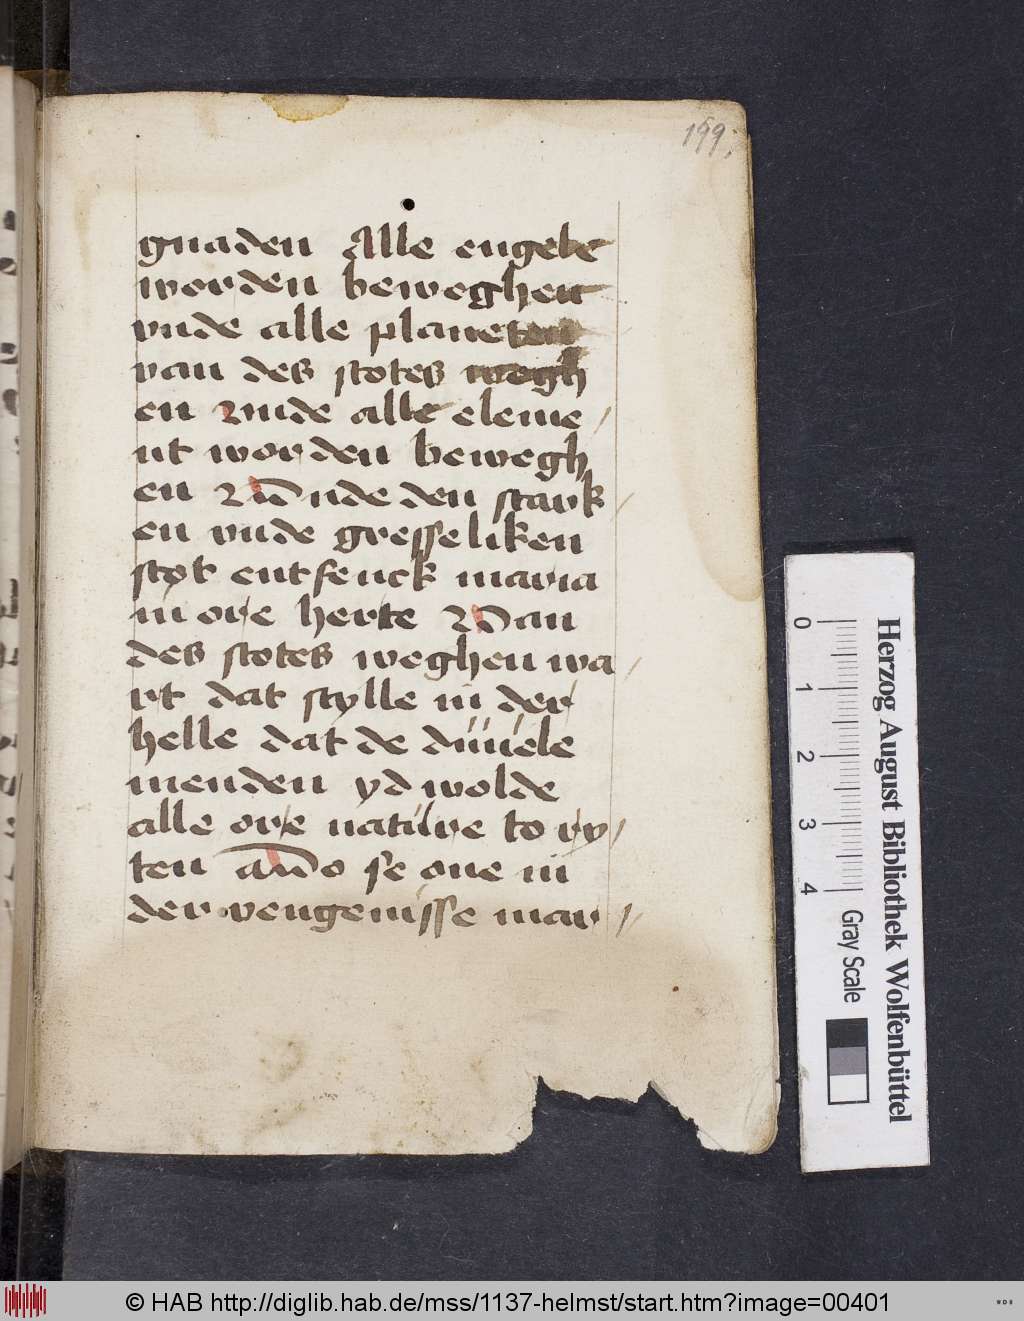 199.
gnaden Alle engele
worden beweghen
vnde alle planeten
van des stotes wegh
en vnde alle eleme /
nt worden bewegh
en vn̄ nde den stark /
en vnde gresseliken
stot entfenck maria
in ore herte van
des stotes weghen wa /
rt dat stylle in der
helle dat de düuele
menden yd wolde
alle ore natüre to ry /
ten also se one in
der vengenisse mar /
Herzog August Bibliothek Wolfenbüttel
0 1 2 3 4
Gray Scale
© HAB http://diglib.hab.de/mss/1137-helmst/start.htm?image=00401